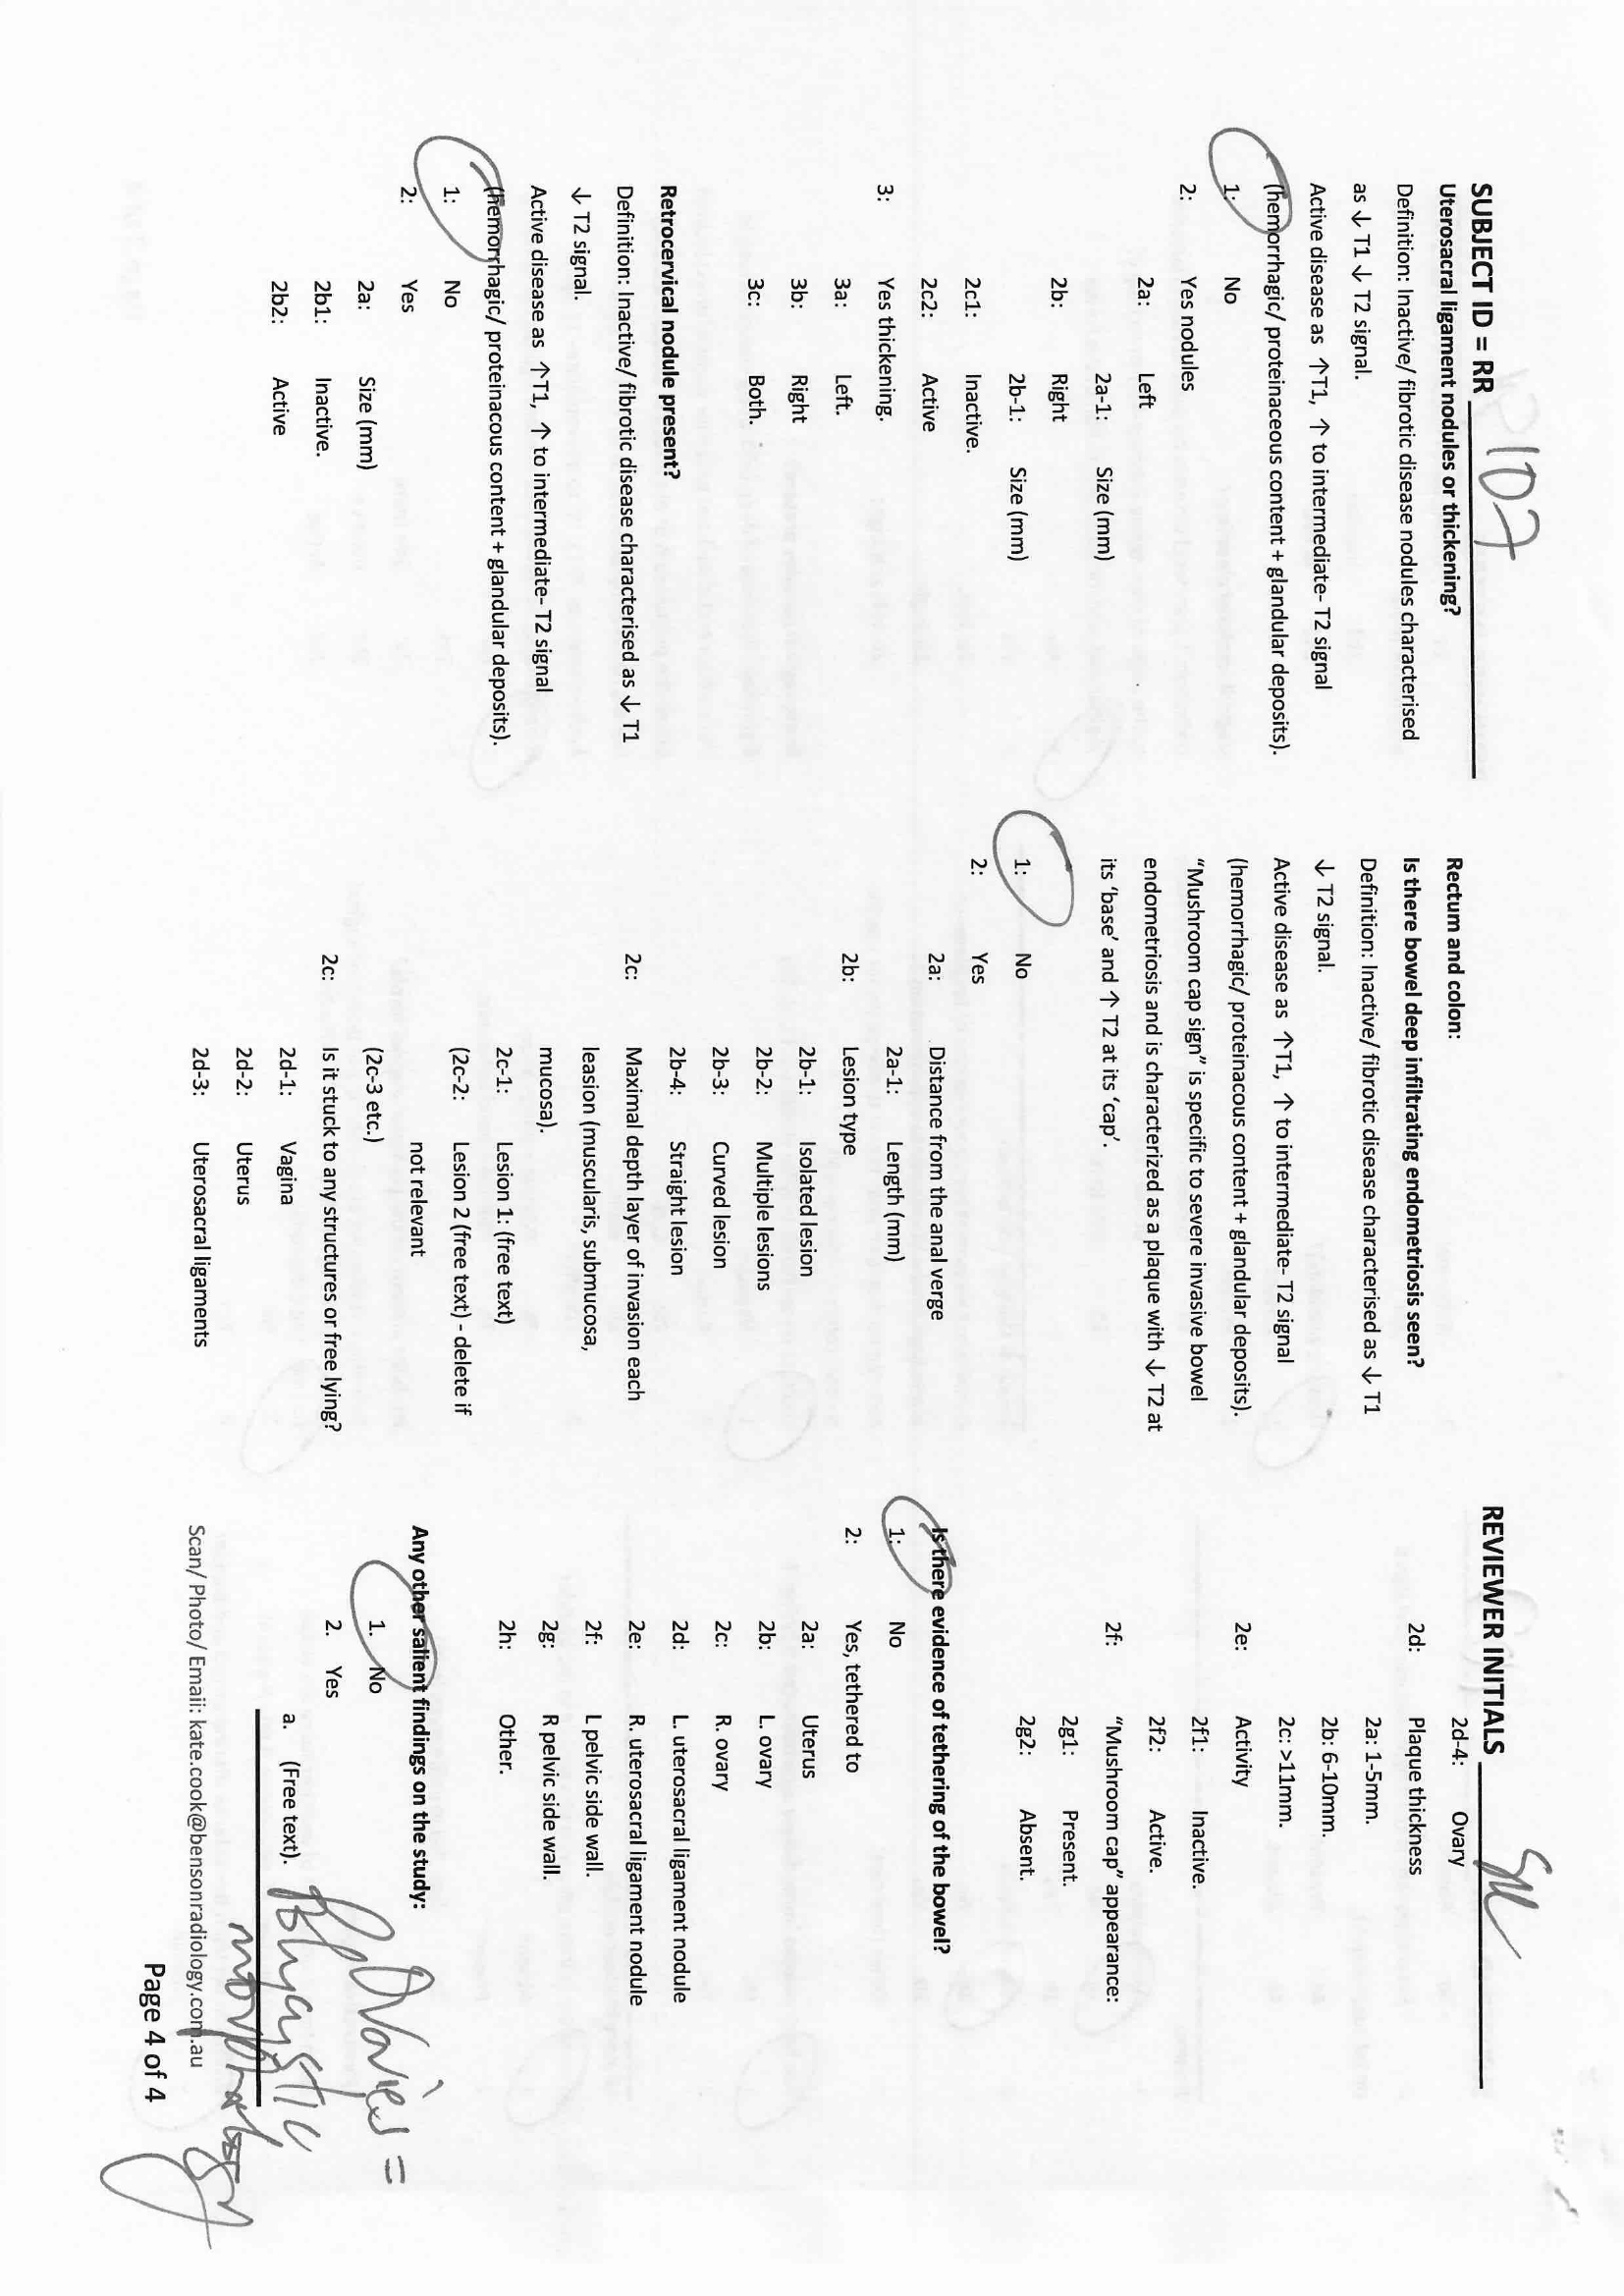 SUBJECT ID = RR P107
Uterosacral ligament nodules or thickening?
Definition: Inactive/ fibrotic disease nodules characterised
as ↓ T1 ↓ T2 signal.
Active disease as ↑T1, ↑ to intermediate- T2 signal
(hemorrhagic/ proteinaceous content + glandular deposits).
1: No
2: Yes nodules
2a: Left
2a-1: Size (mm)
2b: Right
2b-1: Size (mm)
2c1: Inactive.
2c2: Active
3: Yes thickening.
3a: Left.
3b: Right
3c: Both.
Retrocervical nodule present?
Definition: Inactive/ fibrotic disease characterised as ↓ T1
↓ T2 signal.
Active disease as ↑T1, ↑ to intermediate- T2 signal
(hemorrhagic/ proteinacous content + glandular deposits).
1: No
2: Yes
2a: Size (mm)
2b1: Inactive.
2b2: Active
Rectum and colon:
Is there bowel deep infiltrating endometriosis seen?
Definition: Inactive/ fibrotic disease characterised as ↓ T1
↓ T2 signal.
Active disease as ↑T1, ↑ to intermediate- T2 signal
(hemorrhagic/ proteinacous content + glandular deposits).
“Mushroom cap sign” is specific to severe invasive bowel
endometriosis and is characterized as a plaque with ↓ T2 at
its ‘base’ and ↑ T2 at its ‘cap’.
1: No
2: Yes
2a: Distance from the anal verge
2a-1: Length (mm)
2b: Lesion type
2b-1: Isolated lesion
2b-2: Multiple lesions
2b-3: Curved lesion
2b-4: Straight lesion
2c: Maximal depth layer of invasion each
leasion (muscularis, submucosa,
mucosa).
2c-1: Lesion 1: (free text)
(2c-2: Lesion 2 (free text) - delete if
not relevant
(2c-3 etc.)
2c: Is it stuck to any structures or free lying?
2d-1: Vagina
2d-2: Uterus
2d-3: Uterosacral ligaments
REVIEWER INITIALS
2d-4: Ovary
2d: Plaque thickness
2a: 1-5mm.
2b: 6-10mm.
2c: >11mm.
2e: Activity
2f1: Inactive.
2f2: Active.
2f: “Mushroom cap” appearance:
2g1: Present.
2g2: Absent.
Is there evidence of tethering of the bowel?
1: No
2: Yes, tethered to
2a: Uterus
2b: L. ovary
2c: R. ovary
2d: L. uterosacral ligament nodule
2e: R. uterosacral ligament nodule
2f: L pelvic side wall.
2g: R pelvic side wall.
2h: Other.
Any other salient findings on the study:
1. No
2. Yes
a. (Free text).
Ovaries =
Polycystic
morphology
Scan/ Photo/ Email: kate.cook@bensonradiology.com.au
Page 4 of 4